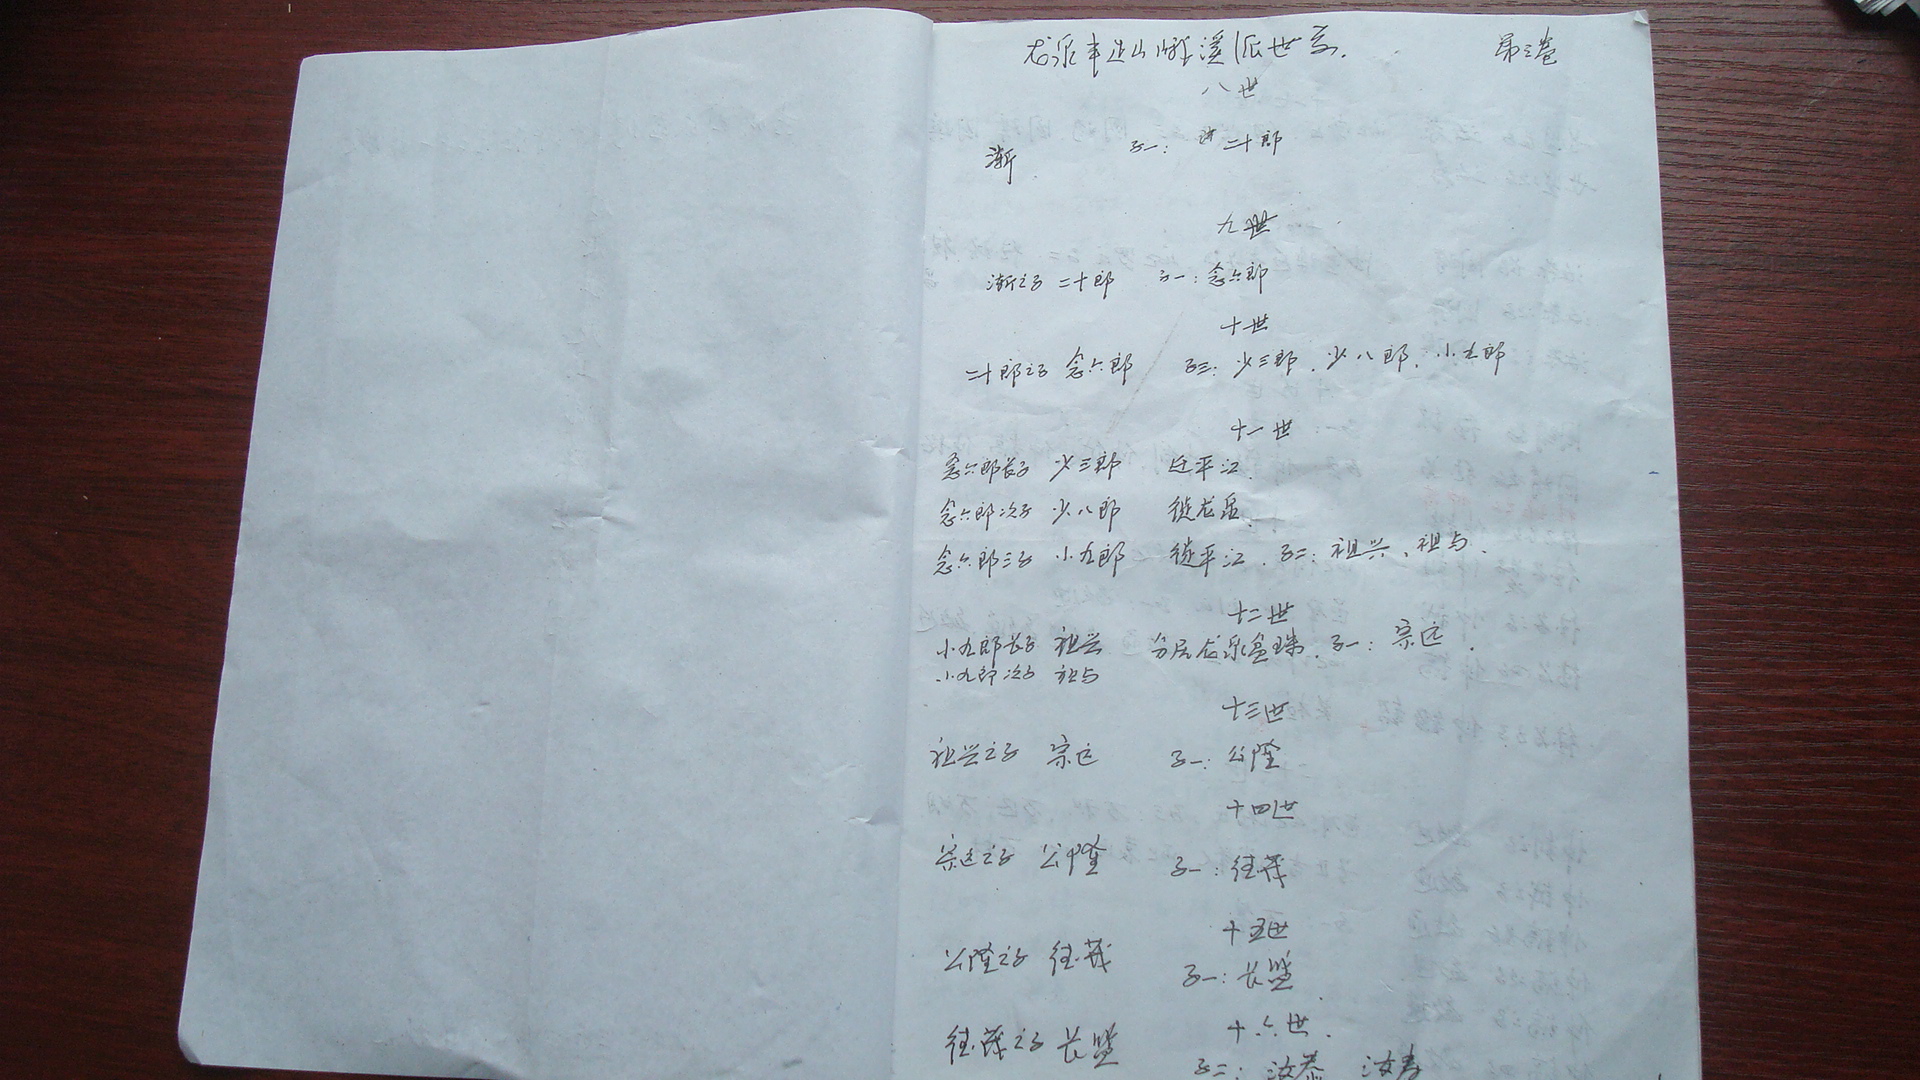 龙泉丰 山 溪派世系. 第三卷
八世
渐 子一: 二十郎
九世
渐之子 二十郎 子一:念六郎
十世
二十郎之子 念六郎 子三:少三郎、少八郎、小九郎
十一世
念六郎长子 少三郎 迁平江.
念六郎次子 少八郎 徙龙泉.
念六郎三子 小九郎 徙平江. 子二:祖兴、祖与.
十二世
小九郎长子 祖兴 分居龙泉 . 子一:宗远.
小九郎次子 祖与
十三世
祖兴之子 宗远 子一:公隆
十四世
宗远之子 公隆 子一:德茂
十五世
公隆之子 德茂 子一:长
十六世.
德茂之子 长
子二:汝泰 汝寿